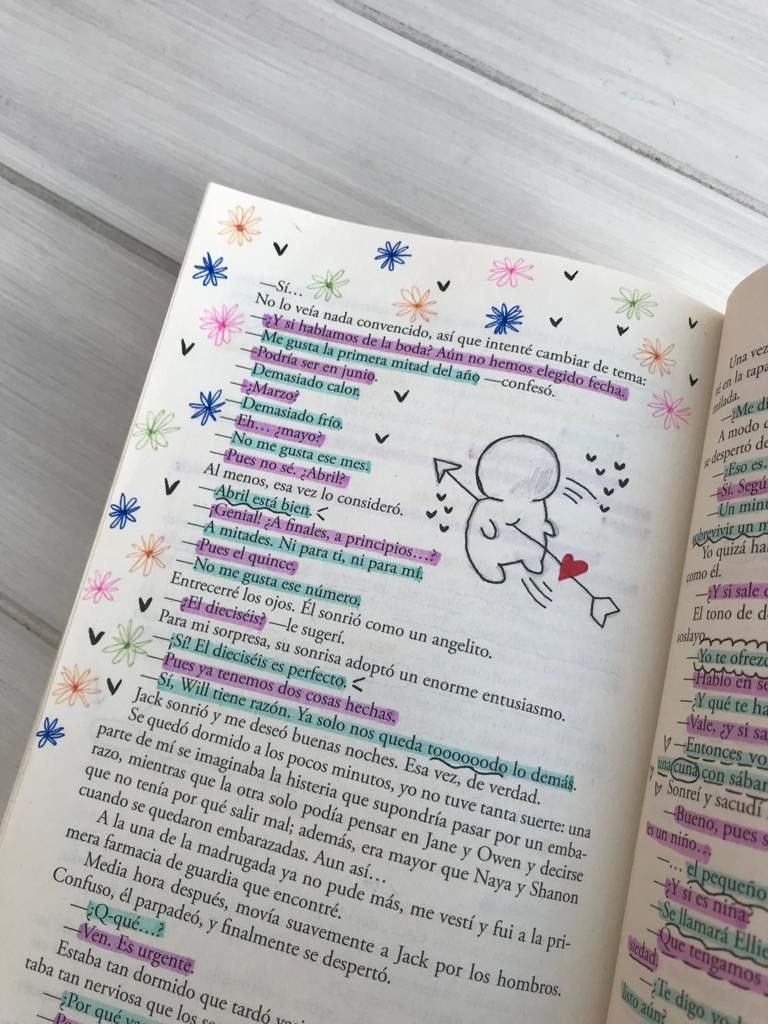 —Sí...
No lo veía nada convencido, así que intenté cambiar de tema:
—¿Y si hablamos de la boda? Aún no hemos elegido fecha.
—Me gusta la primera mitad del año —confesó.
—Podría ser en junio.
—Demasiado calor.
—¿Marzo?
—Demasiado frío.
—Eh... ¿mayo?
—No me gusta ese mes.
—Pues no sé. ¿Abril?
Al menos, esa vez lo consideró.
—Abril está bien.
—¡Genial! ¿A finales, a principios...?
—A mitades. Ni para ti, ni para mí.
—Pues el quince.
—No me gusta ese número.
Entrecerré los ojos. Él sonrió como un angelito.
—¿El dieciséis? —le sugerí.
Para mi sorpresa, su sonrisa adoptó un enorme entusiasmo.
—¡Sí! El dieciséis es perfecto.
—Pues ya tenemos dos cosas hechas.
—Sí, Will tiene razón. Ya solo nos queda toooooodo lo demás.
Jack sonrió y me deseó buenas noches. Esa vez, de verdad.
Se quedó dormido a los pocos minutos, yo no tuve tanta suerte: una
parte de mí se imaginaba la histeria que supondría pasar por un emba-
razo, mientras que la otra solo podía pensar en Jane y Owen y decirse
que no tenía por qué salir mal; además, era mayor que Naya y Shanon
cuando se quedaron embarazadas. Aun así...
A la una de la madrugada ya no pude más, me vestí y fui a la pri-
mera farmacia de guardia que encontré.
Media hora después, movía suavemente a Jack por los hombros.
Confuso, él parpadeó, y finalmente se despertó.
—¿Q-qué...?
—Ven. Es urgente.
Estaba tan dormido que tardó
taba tan nerviosa que los
—¿Por qué
Una vez
en la tapa
milada.
—¿Me
A modo
se despertó de
—¿Eso es
—Sí. Segú
—Un
sobrevivir un
Yo quizá
como él.
—¿Y si sale
El tono de
soslayo.
—Yo te
—Hablo en
—¿Y qué te
—Vale, ¿y si
—Entonces
una cuna con
Sonreí y sacudí
—Bueno, pues
es un niño...
—... el pequeño
—¿Y si es niña?
—Se llamará Ellie
—Que tengamos
—¿Te digo
listo aún?